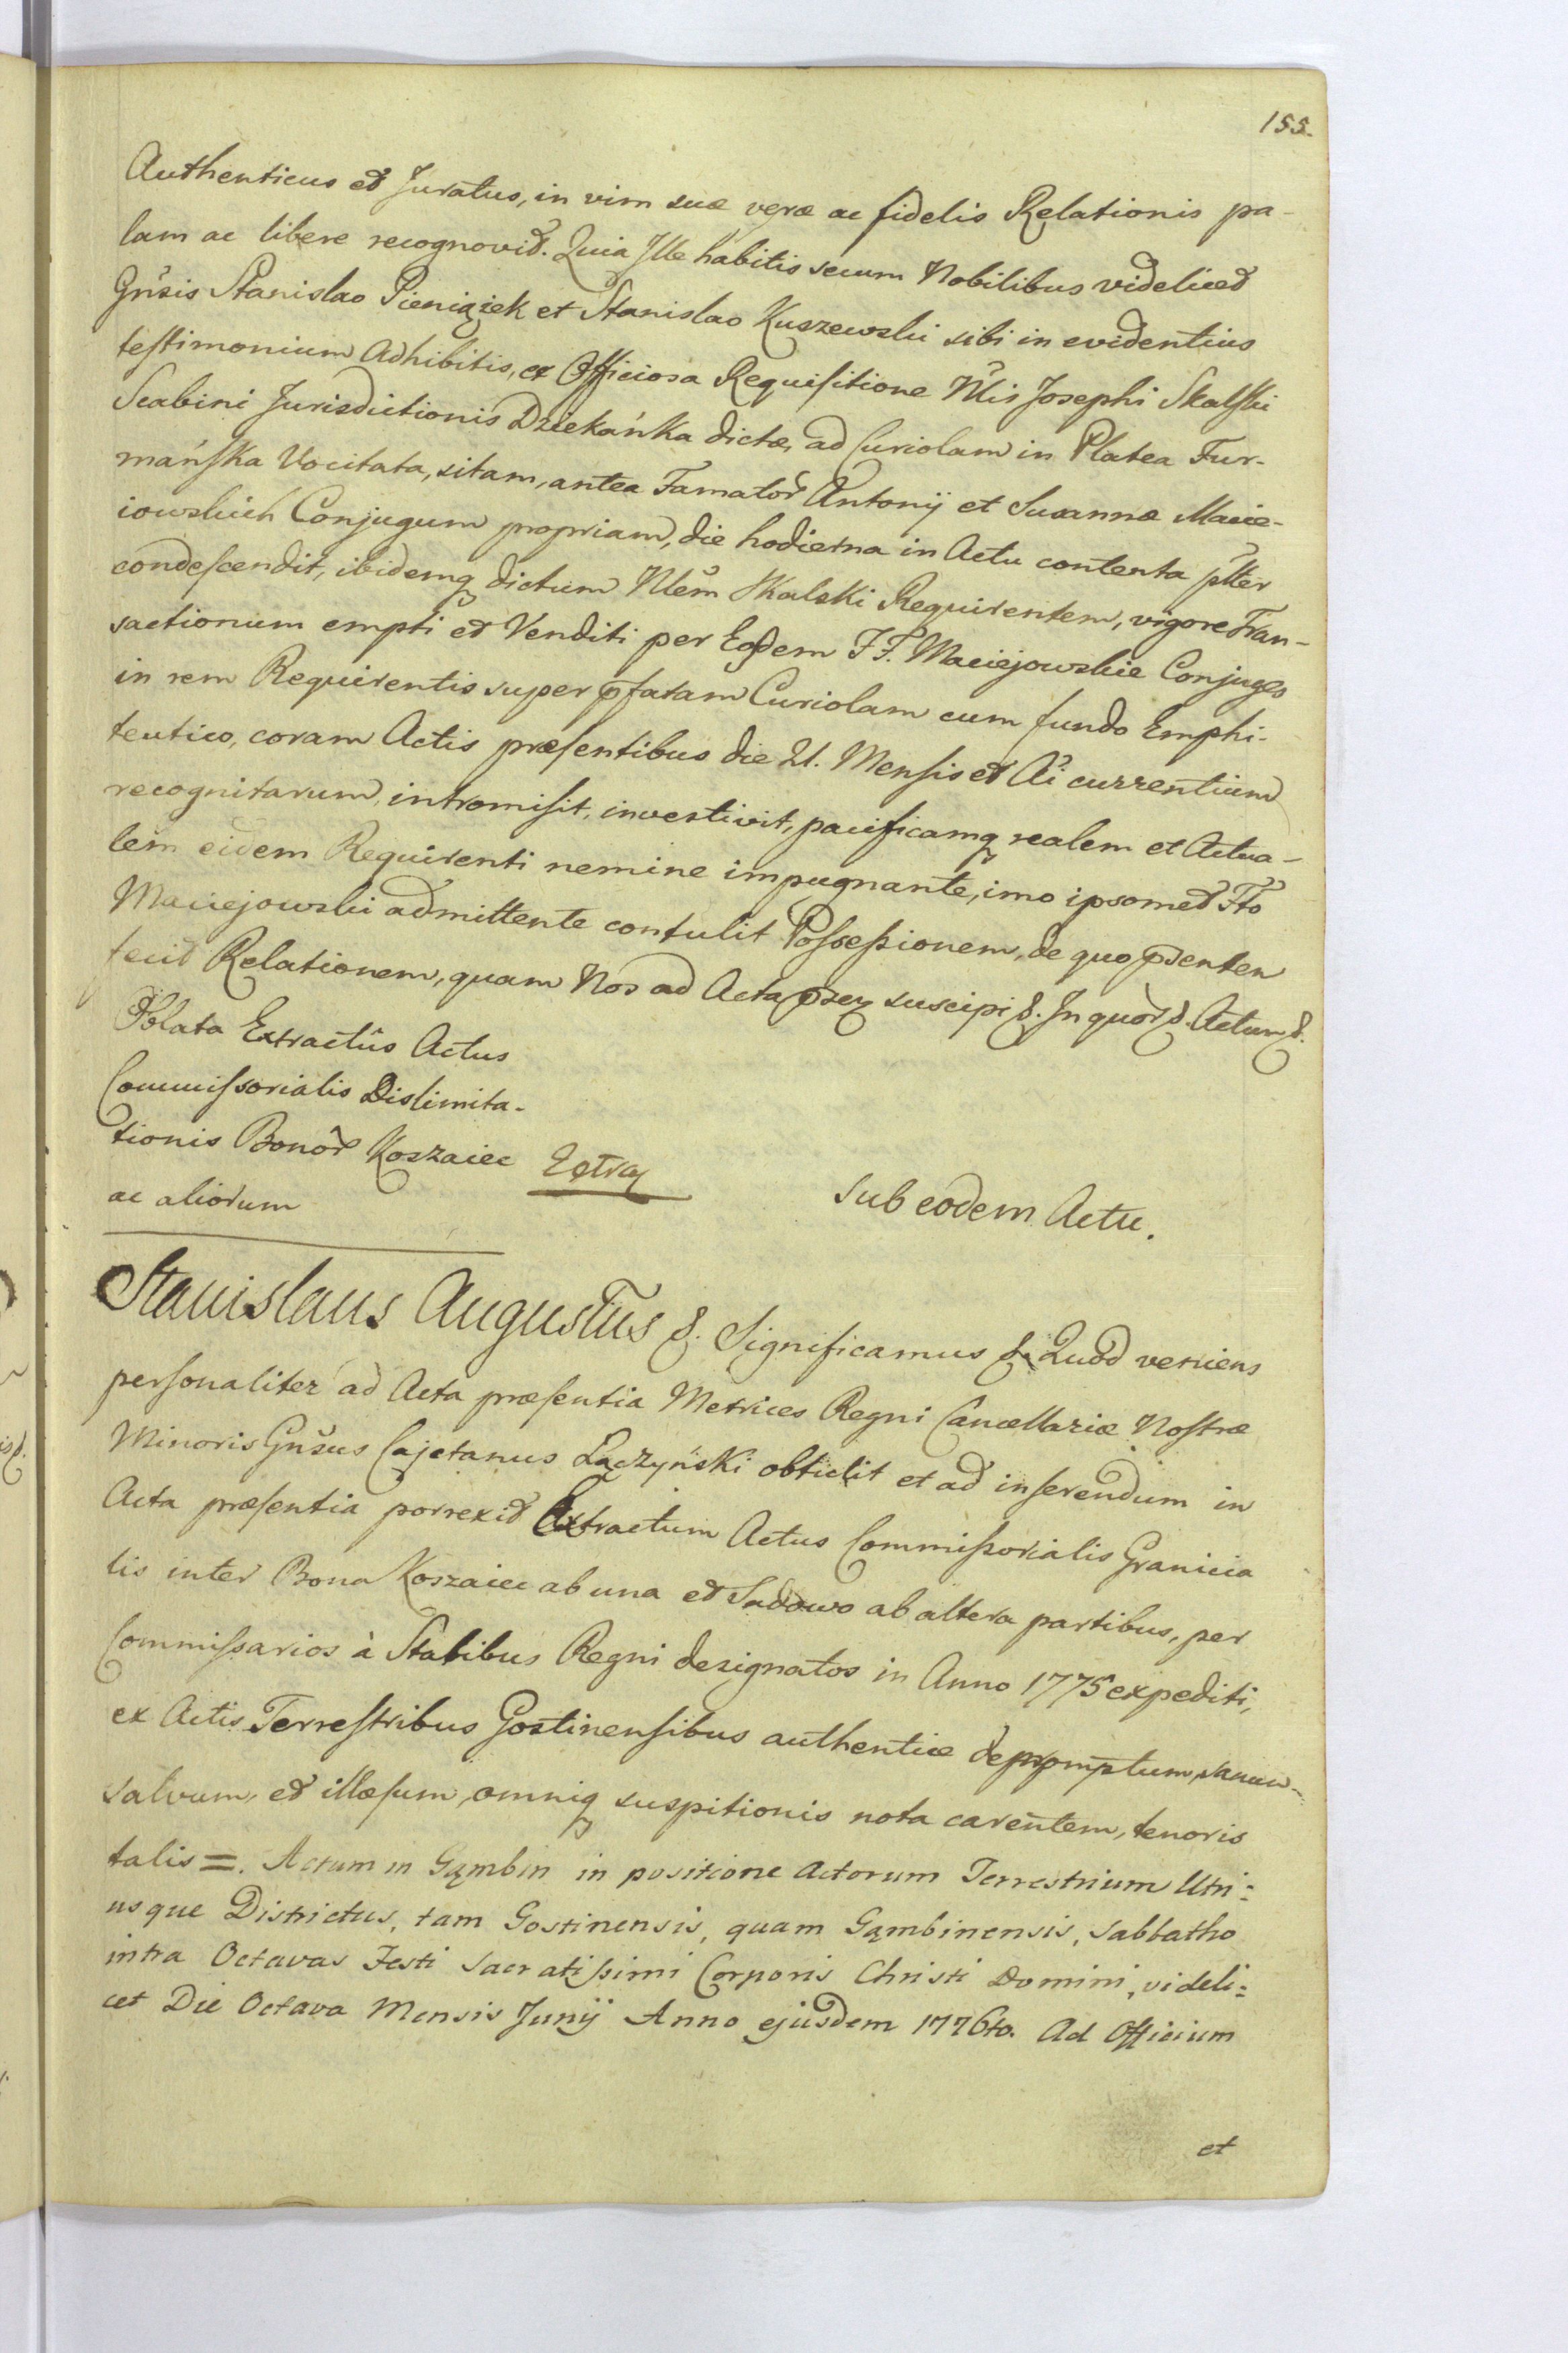 155.
Authenticus et Juratus, in vim suæ veræ ac fidelis Relationis pa-
lam ac libere recognovit. Quia Ille habitis secum Nobilibus videlicet
Gnšis Stanislao Pieniążek et Stanislao Kuszewski sibi in evidentius
testimonium Adhibitis, ex Officiosa Requisitione Nlis Josephi Skalski
Scabini Jurisdictionis Dziekańka dictæ, ad Curiolam in Platea Fur-
mańska Vocitata, sitam, antea Famator Antonij et Susannæ Macie-
iowskich Conjugum propriam, die hodierna in Actu contenta pltter
condescendit, ibidemq dictum Nlem Skalski Requirentem, vigore Tran-
sactionum empti et Venditi per Eosdem FF. Maciejowskie Conjuges
in rem Requirentis super pfatam Curiolam cum fundo Emphi-
teutico, coram Actis præsentibus die 21. Mensis et Ai currentium
recognitarum, intromisit, investivit, pacificamq realem et Actua-
lem eidem Requirenti nemine impugnante, imo ipsomet Ffto
Maciejowski admittente contulit Possessionem, de quo psentem
fecit Relationem, quam Nos ad Acta psey suscipi &. In quor &. Actum &.
Oblata Extractûs Actus
Commissorialis Dislimita-
tionis Bonor Koszaiec
ac aliorum
Extra
Sub eodem Actu.
Stanislaus Augustus &. Significamus &. Quod veniens
personaliter ad Acta præsentia Metrices Regni Cancellariæ Nostræ
Minoris Gnšus Cajetanus Łączyński obtulit et ad inserendum in
Acta præsentia porrexit Extractum Actus Commissorialis Granicia
lis inter Bona Koszaiec ab una et Sadowo ab altera partibus, per
Commissarios à Statibus Regni designatos in Anno 1775 expediti,
ex Actis Terrestribus Gostinensibus authentice depromptum, sanum
salvum, et illæsum, omniq suspitionis nota carentem, tenoris
talis =. Actum in Gąmbin in positione Actorum Terrestrium Utri=
usque Districtus, tam Gostinensis, quam Gąmbinensis, Sabbatho
intra Octavas Festi Sacratissimi Corporis Christi Domini, videli=
cet Die Octava Mensis Junij Anno ejusdem 1776to. Ad Officium
et